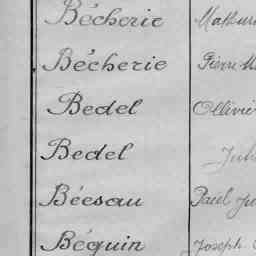 Bécherie Mathurin
Bécherie Pierre M
Bedel Ollivier
Bedel
Béesau Paul
Béguin Joseph